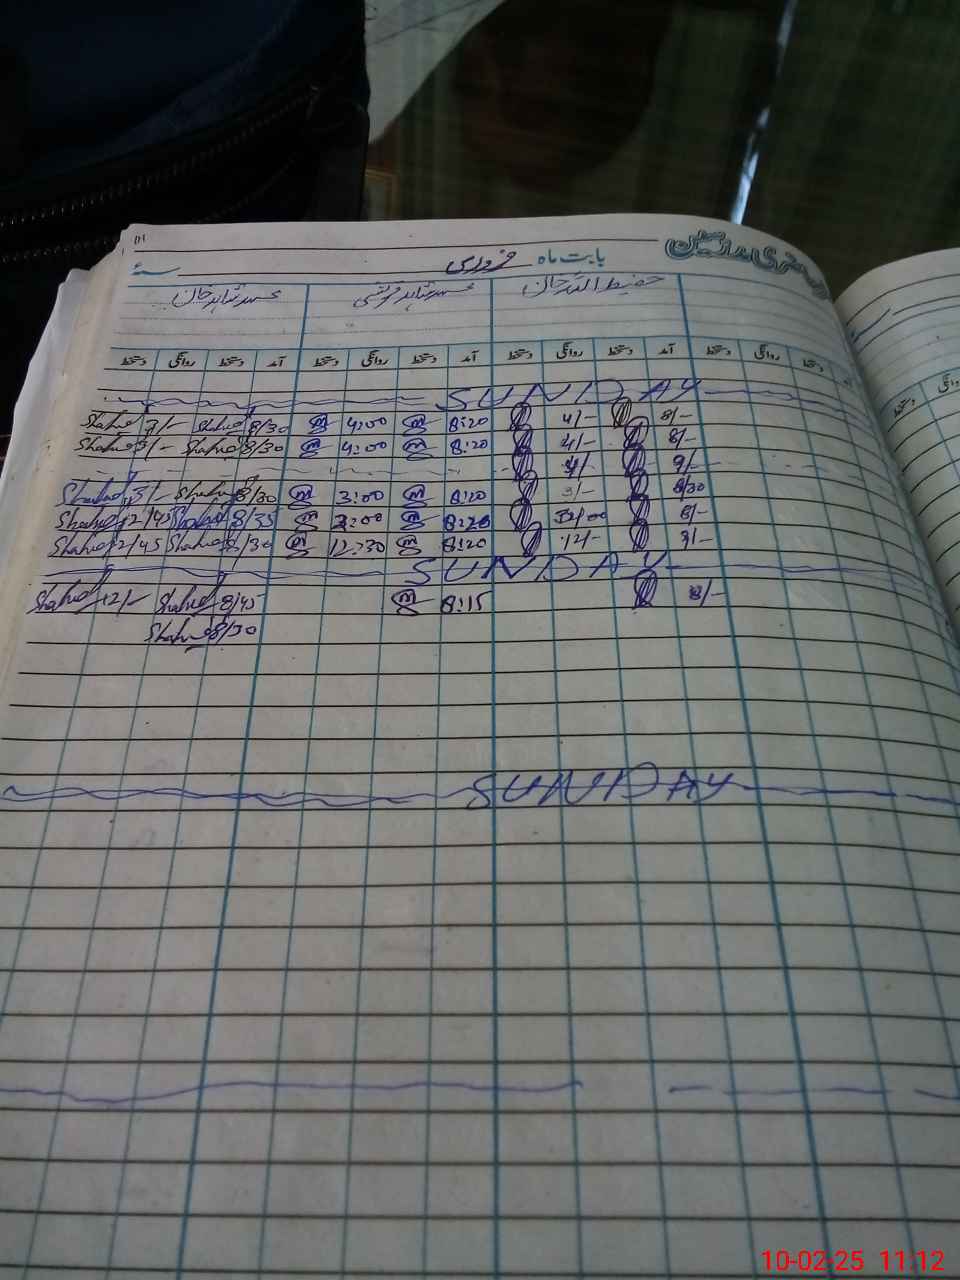 بابت ماہ فروری سنہ
حفیظ اللہ خان محمد شاہد قریشی محمد شاہد خان
آمد دستخط روانگی دستخط آمد دستخط روانگی دستخط آمد دستخط روانگی دستخط
SUNDAY
Shahid 3/- Shahid 8/30 4:00 8:20 4/- 8/-
Shahid 3/- Shahid 8/30 4:00 8:20 4/- 8/-
4/- 9/-
Shahid 3/- Shahid 8/30 3:00 8:20 3/- 8/30
Shahid 12/45 Shahid 8/35 8:20 8/-
Shahid 12/45 Shahid 8/30 12:30 8:20 12/-
SUNDAY
Shahid 12/- Shahid 8/45 8:15 8/-
Shahid 8/30
SUNDAY
10-02-25 11:12